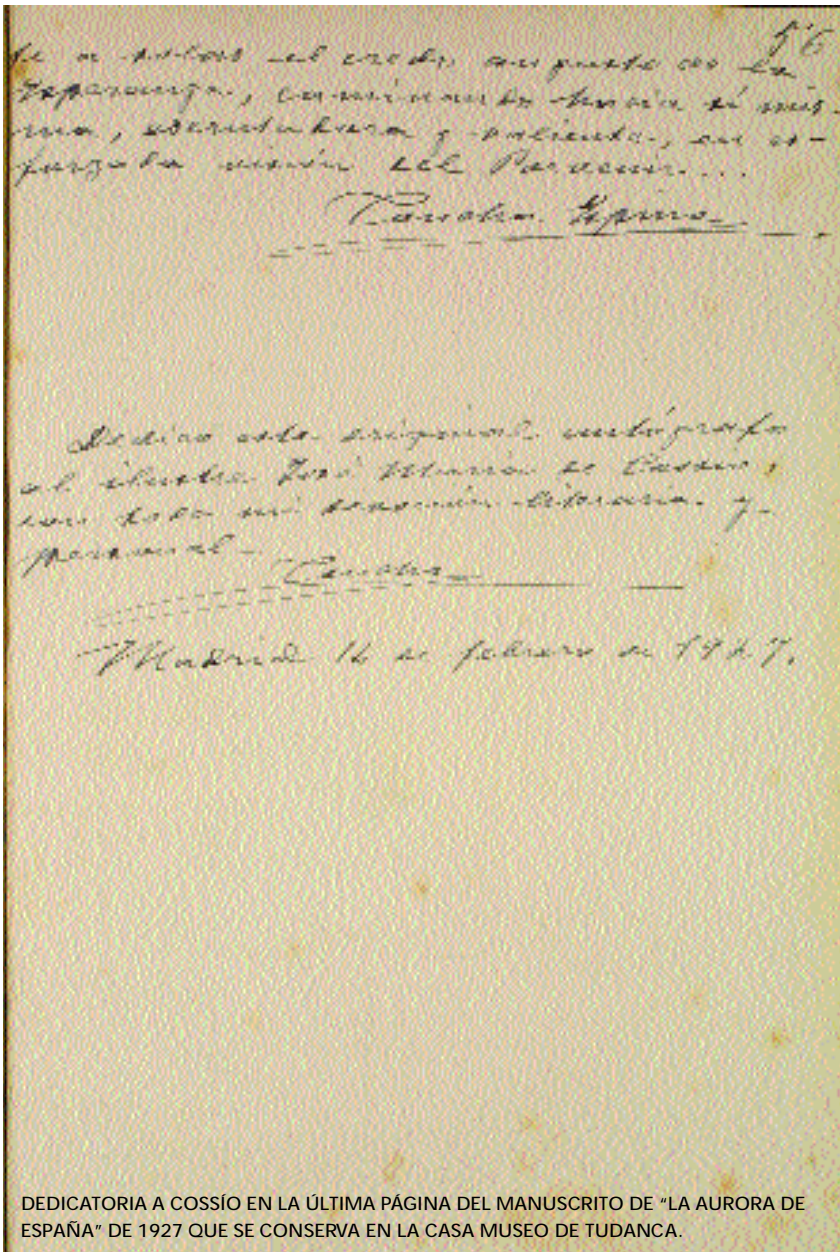 56
te a solas el credo augusto de la
Esperanza, caminando hacia sí mis-
ma, escrutadora y valiente, en es-
forzada visión del Porvenir...
Concha Espina
Dedico este original autógrafo
al ilustre José María de Cossío,
con toda mi devoción literaria y
personal-
Concha
Madrid 14 de febrero de 1927.
DEDICATORIA A COSSÍO EN LA ÚLTIMA PÁGINA DEL MANUSCRITO DE “LA AURORA DE
ESPAÑA” DE 1927 QUE SE CONSERVA EN LA CASA MUSEO DE TUDANCA.